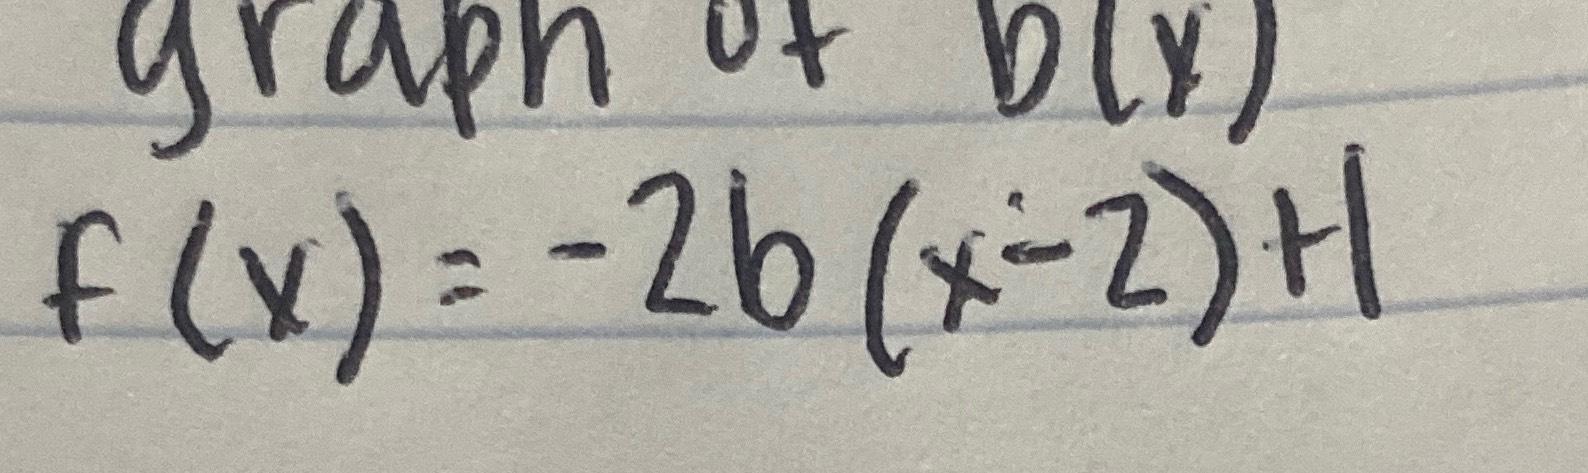 graph of b(x)
f(x) = -2b(x-2)+1